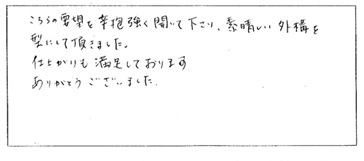 こちらの要望を辛抱強く聞いて下さり、素晴しい外構を
型にして頂きました。
仕上がりも満足しております
ありがとうございました。